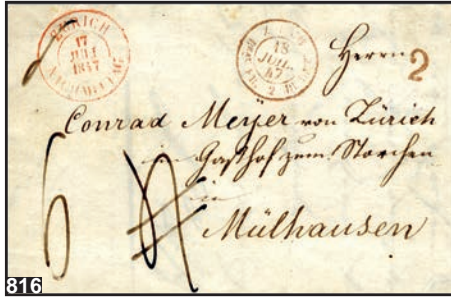 ZÜRICH
17
JULI
1847
NACHMITTAG
18
JUIL.
47
2
Herrn
2
Conrad Meyer von Zürich
Gasthof zum Storchen
in
Mülhausen
6
816